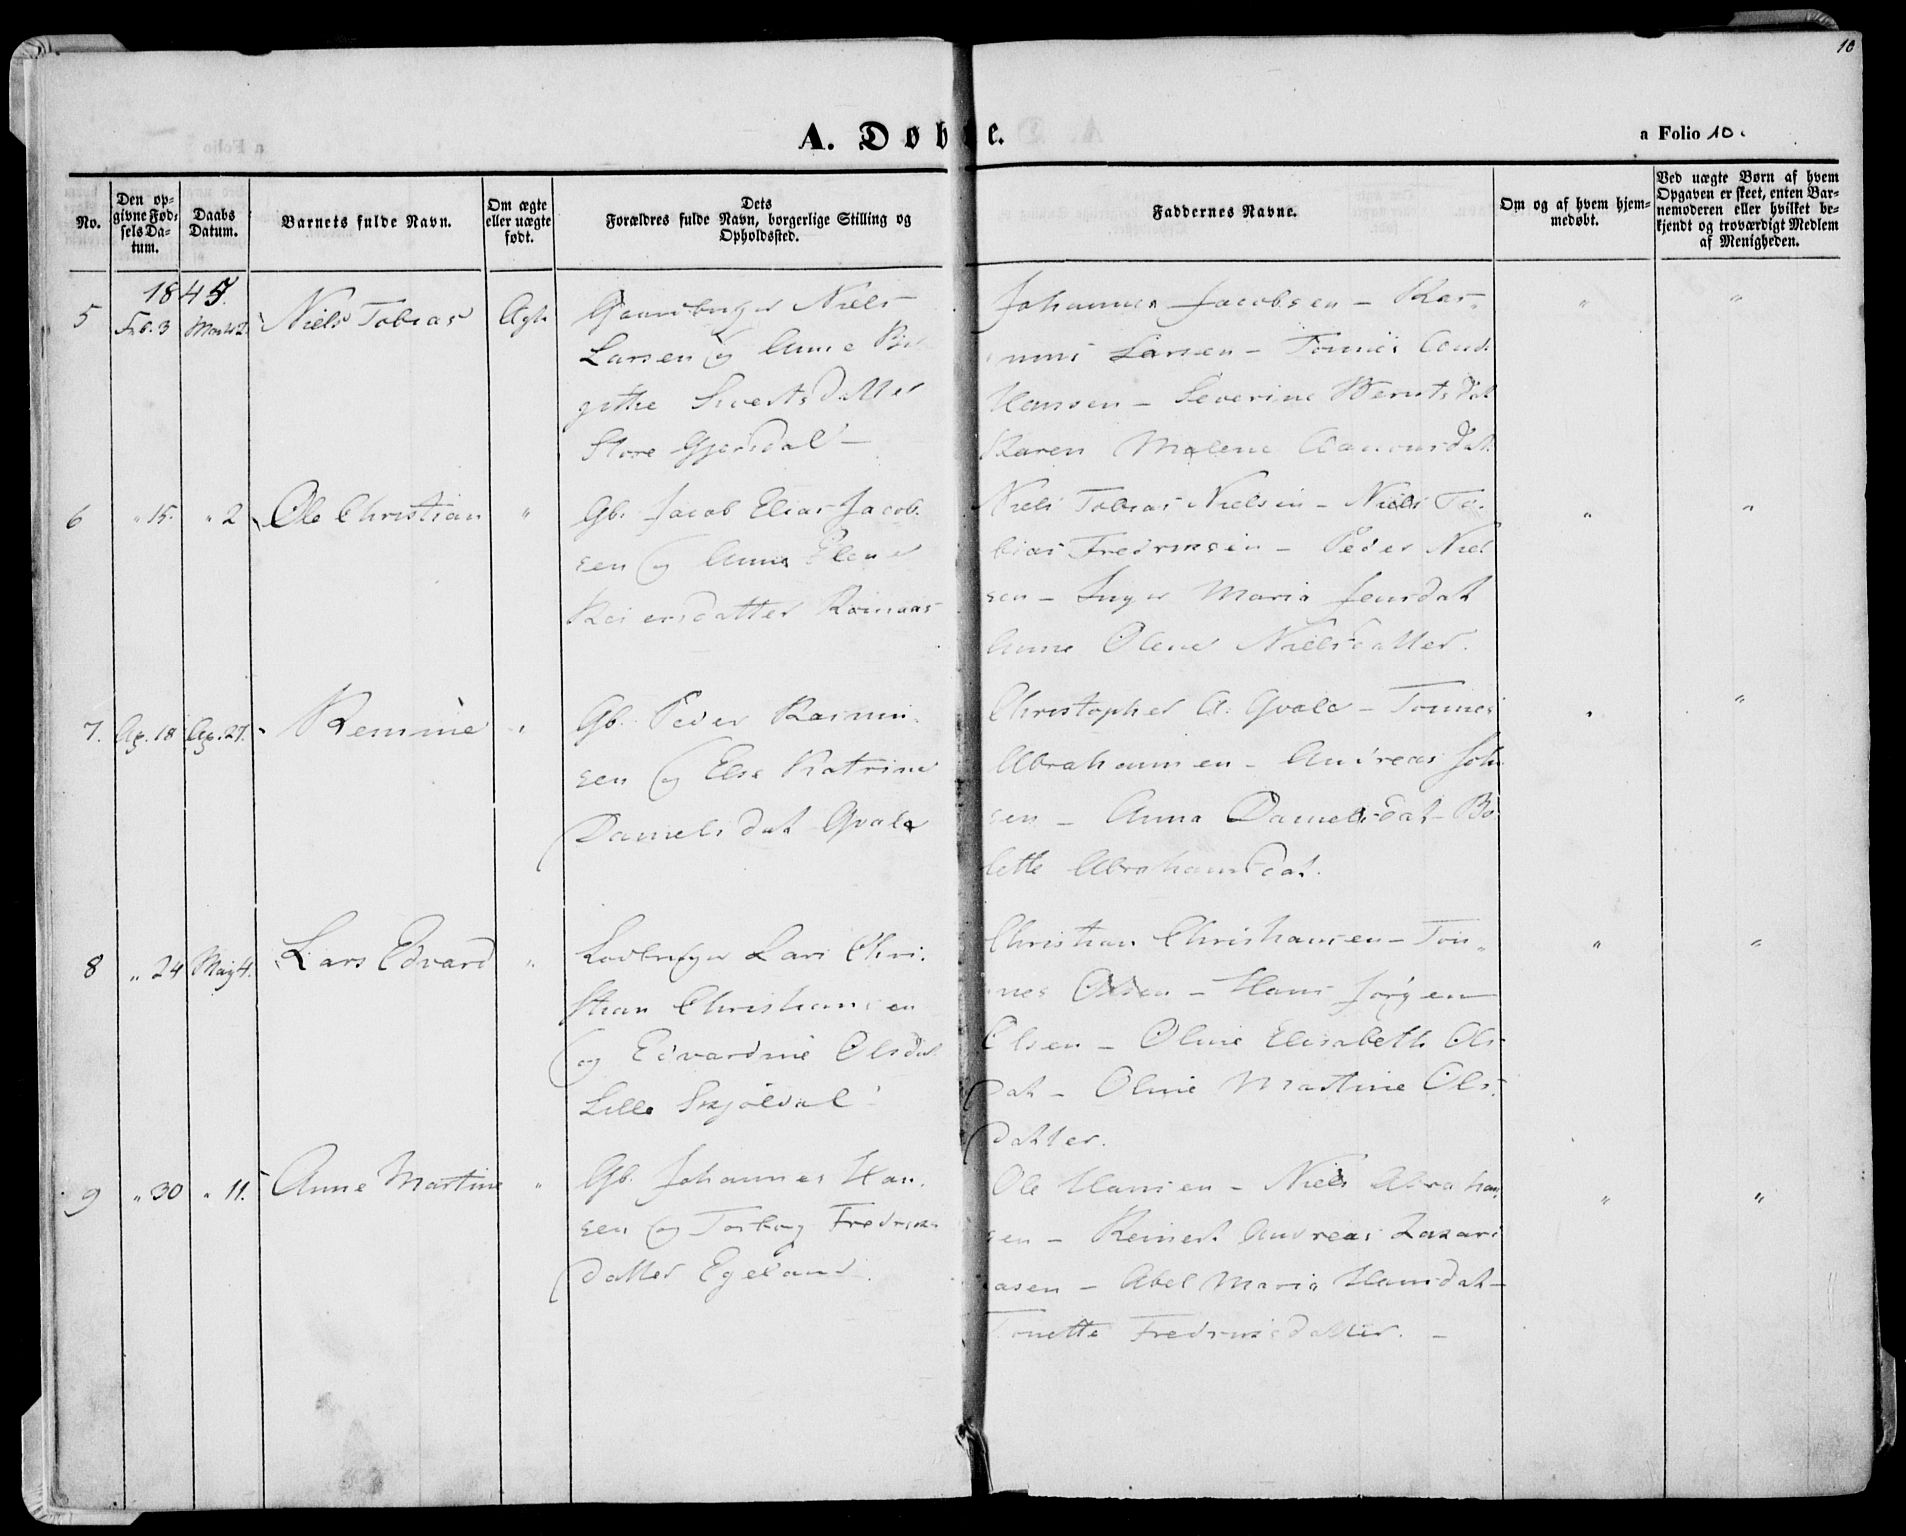 10
A. Døbte.
a Folio 10.
No.
Den op-
givne Fød-
sels Da-
tum.
Daabs
Datum.
Barnets fulde Navn.
Om ægte
eller uægte
født.
Dets
Forældres fulde Navn, borgerlige Stilling og
Opholdssted.
Faddernes Navne.
Om og af hvem hjem-
medøbt.
Ved uægte Børn af hvem
Opgaven er skeet, enten Bar-
nemoderen eller hvilket be-
kjendt og troværdigt Medlem
af Menigheden.
1845.
5 Feb. 3 Marts 2. Niels Tobias Ægte
Gaardbruger Niels
Larsen og Anne Bir
githe Sivertsdatter
Store Gjersdal -
Johannes Jacobsen - Ras-
mus Larsen - Tønnes
Hansen - Severine Berntsdat
Karen Malene Aanonsdat.
" "
6 " 15. " 2 Ole Christian "
Gb. Jacob Elias Jacob.
sen og Anne Elene
Reiersdatter
Niels Tobias Nielsen - Niels To-
bias Fredriksen - Peder Niel
sen - Inger Maria Jensdat
Anne Olene Nielsdatter.
" "
7. Ap. 18 Ap. 27. Remine "
Gb. Peder Rasmu.
sen og Else Katrine
Danielsdat Qvale
Christopher A. Qvale - Tønnes
Abrahamsen - Andreas Joh
sen - Anna Danielsdat - Bo
lette Abrahamsdat.
" "
8 " 24 Maj 4. Lars Edvard "
Lars Chri.
stian Christiansen
og Edvardine Olsdat
Lille Skjøldal
Christian Christiansen - Tøn-
nes Olsen - Hans Jørgen
Olsen - Oline Elisabeth Ols
dat - Oline Martine Ols-
datter.
" "
9 " 30 " 11. Anne Martine "
Gb. Johannes Han.
sen og Torborg Fredriks
datter Egeland.
Ole Hansen - Niels Abraham
sen - Reinert Andreas Zakari
asen - Abel Maria Hansdat -
Tonette Fredriksdatter. -
" "